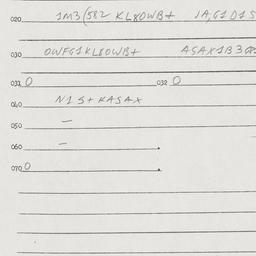 020 1M3(582 KL8OWB+ 1A,G1D1S
030 OWFG1KL8OWB+ ASAX1B3
031 O 032 O
040 N1S+KASAX
050 —
060 —
070 O